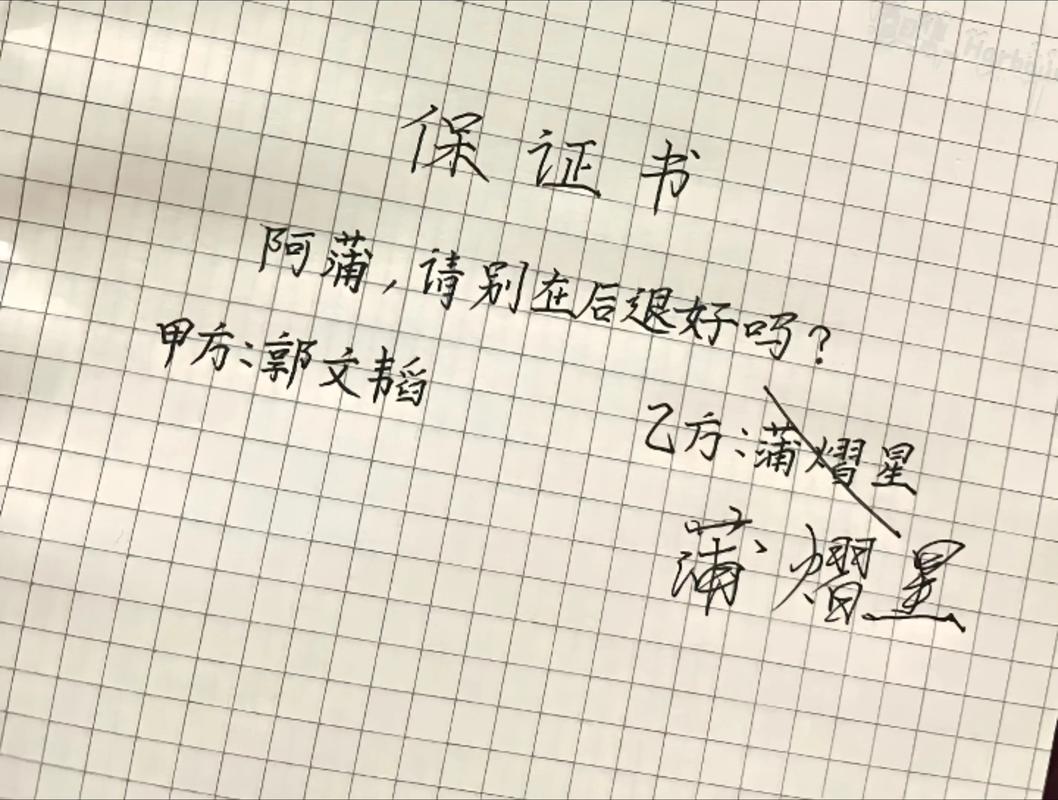 保证书
阿蒲，请别在后退好吗？
甲方：郭文韬
乙方：蒲熠星
蒲熠星